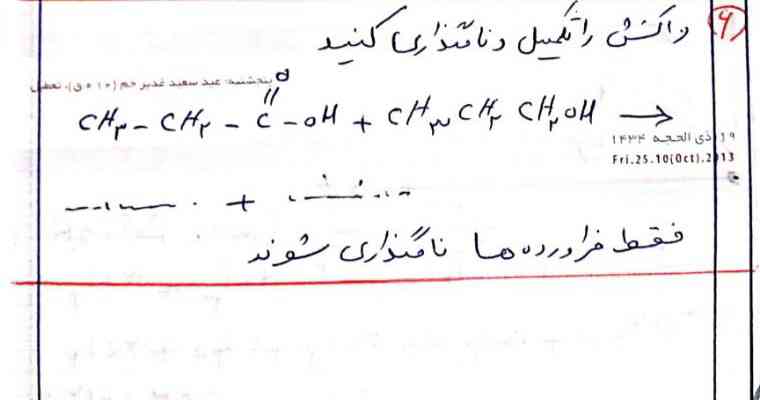 ۶) واکنش را تکمیل و نامگذاری کنید
پنجشنبه: عید سعید غدیر خم (۱۰ ه ق)، تعطیل
O
||
CH۳ – CH۲ – C – OH + CH۳ CH۲ CH۲OH →
۱۹ ذی الحجه ۱۴۳۴
Fri.25.10(Oct).2013
........ + ........
فقط فراورده ها نامگذاری شوند